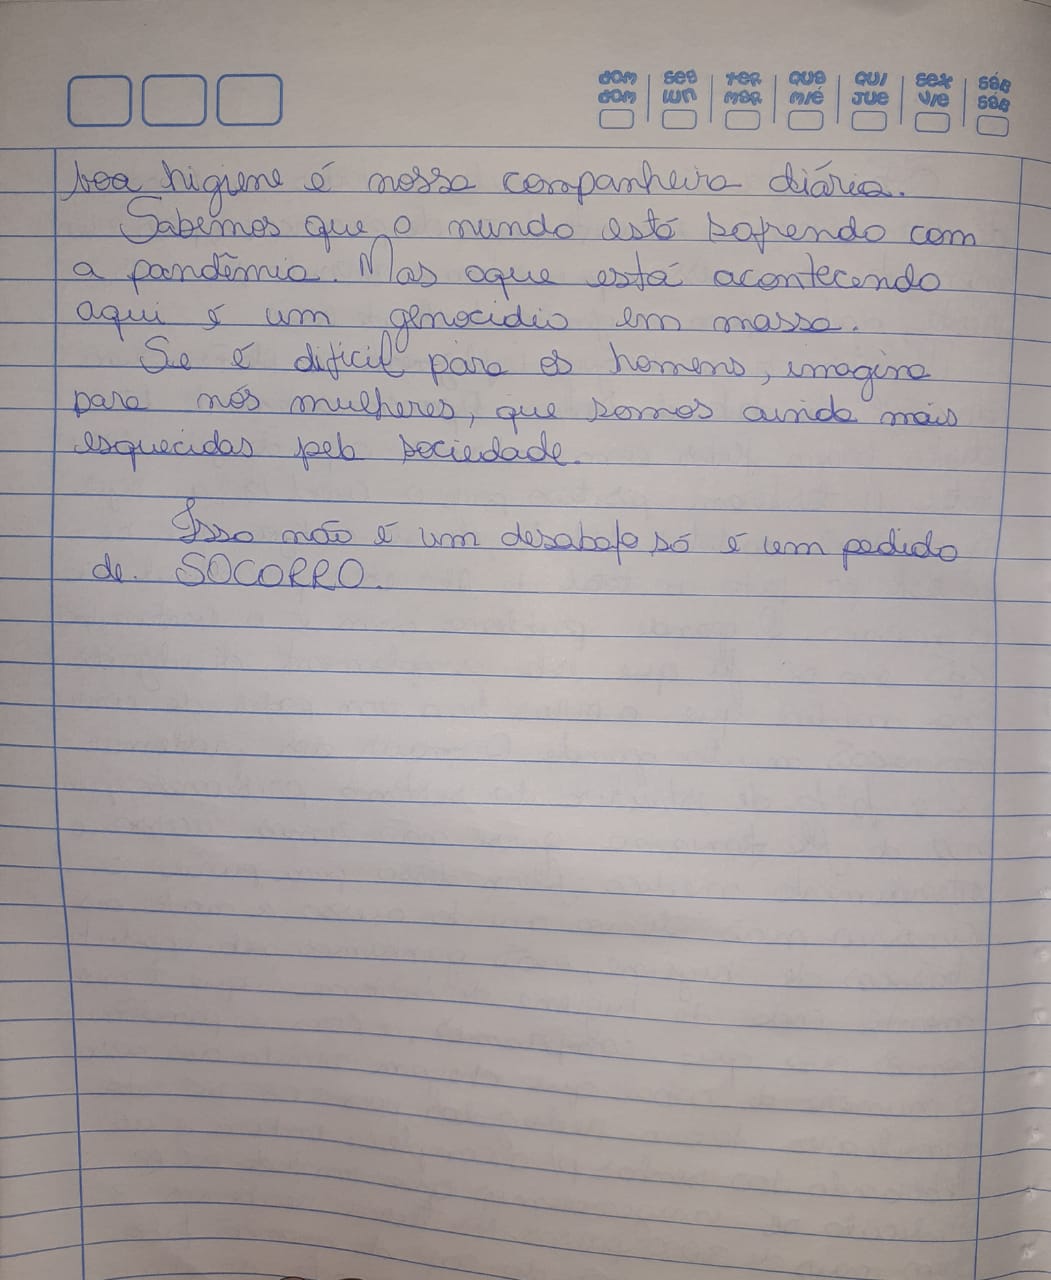 DOM SEG TER QUA QUI SEX SÁB
DOM LUN MAR MIÉ JUE VIE SÁB
boa higiene é nossa companheira diária.
Sabemos que o mundo está sofrendo com
a pandêmia. Mas oque está acontecendo
aqui é um genocidio em massa.
Se é dificil para os homens, imagina
para nós mulheres, que somos ainda mais
esquecidas pela sociedade.
Isso não é um desabafo só é um pedido
de. SOCORRO.